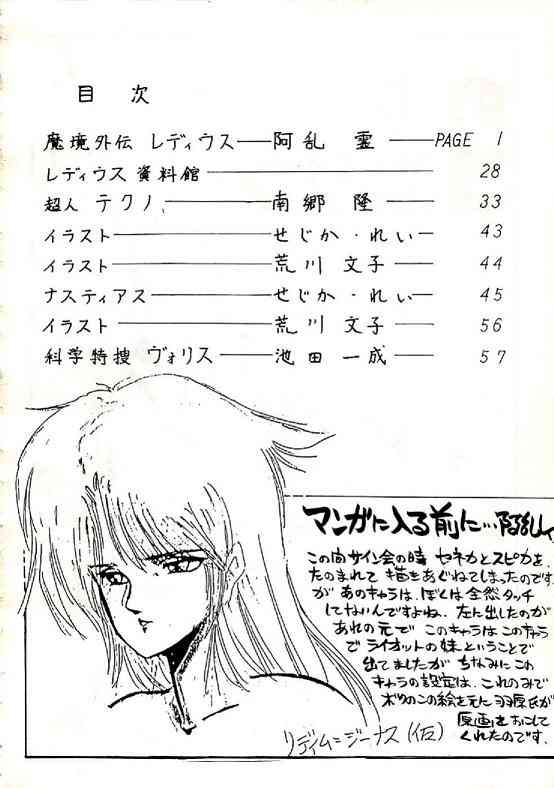 目 次
魔境外伝 レディウス 阿乱 霊 PAGE 1
レディウス 資料館 28
超人 テクノ 南郷 隆 33
イラスト せじか・れい 43
イラスト 荒川 文子 44
ナスティアス せじか・れい 45
イラスト 荒川 文子 56
科学特捜 ヴォリス 池田 一成 57
マンガに入る前に…阿乱
この間サイン会の時 セネカとスピカを、
たのまれて 描きあぐねてしまったのです
が あのキャラは、ぼくは 全然 タッチ
してないんですよね、左に出したのが
あれの元で このキャラは このキャラ
で ライオットの妹、ということで
出てましたが ちなみにこの
キャラの設定は、これのみで
ボクのこの絵を元に 羽原氏が
原画をおこして
くれたのです.
リディム＝ジーナス(仮)